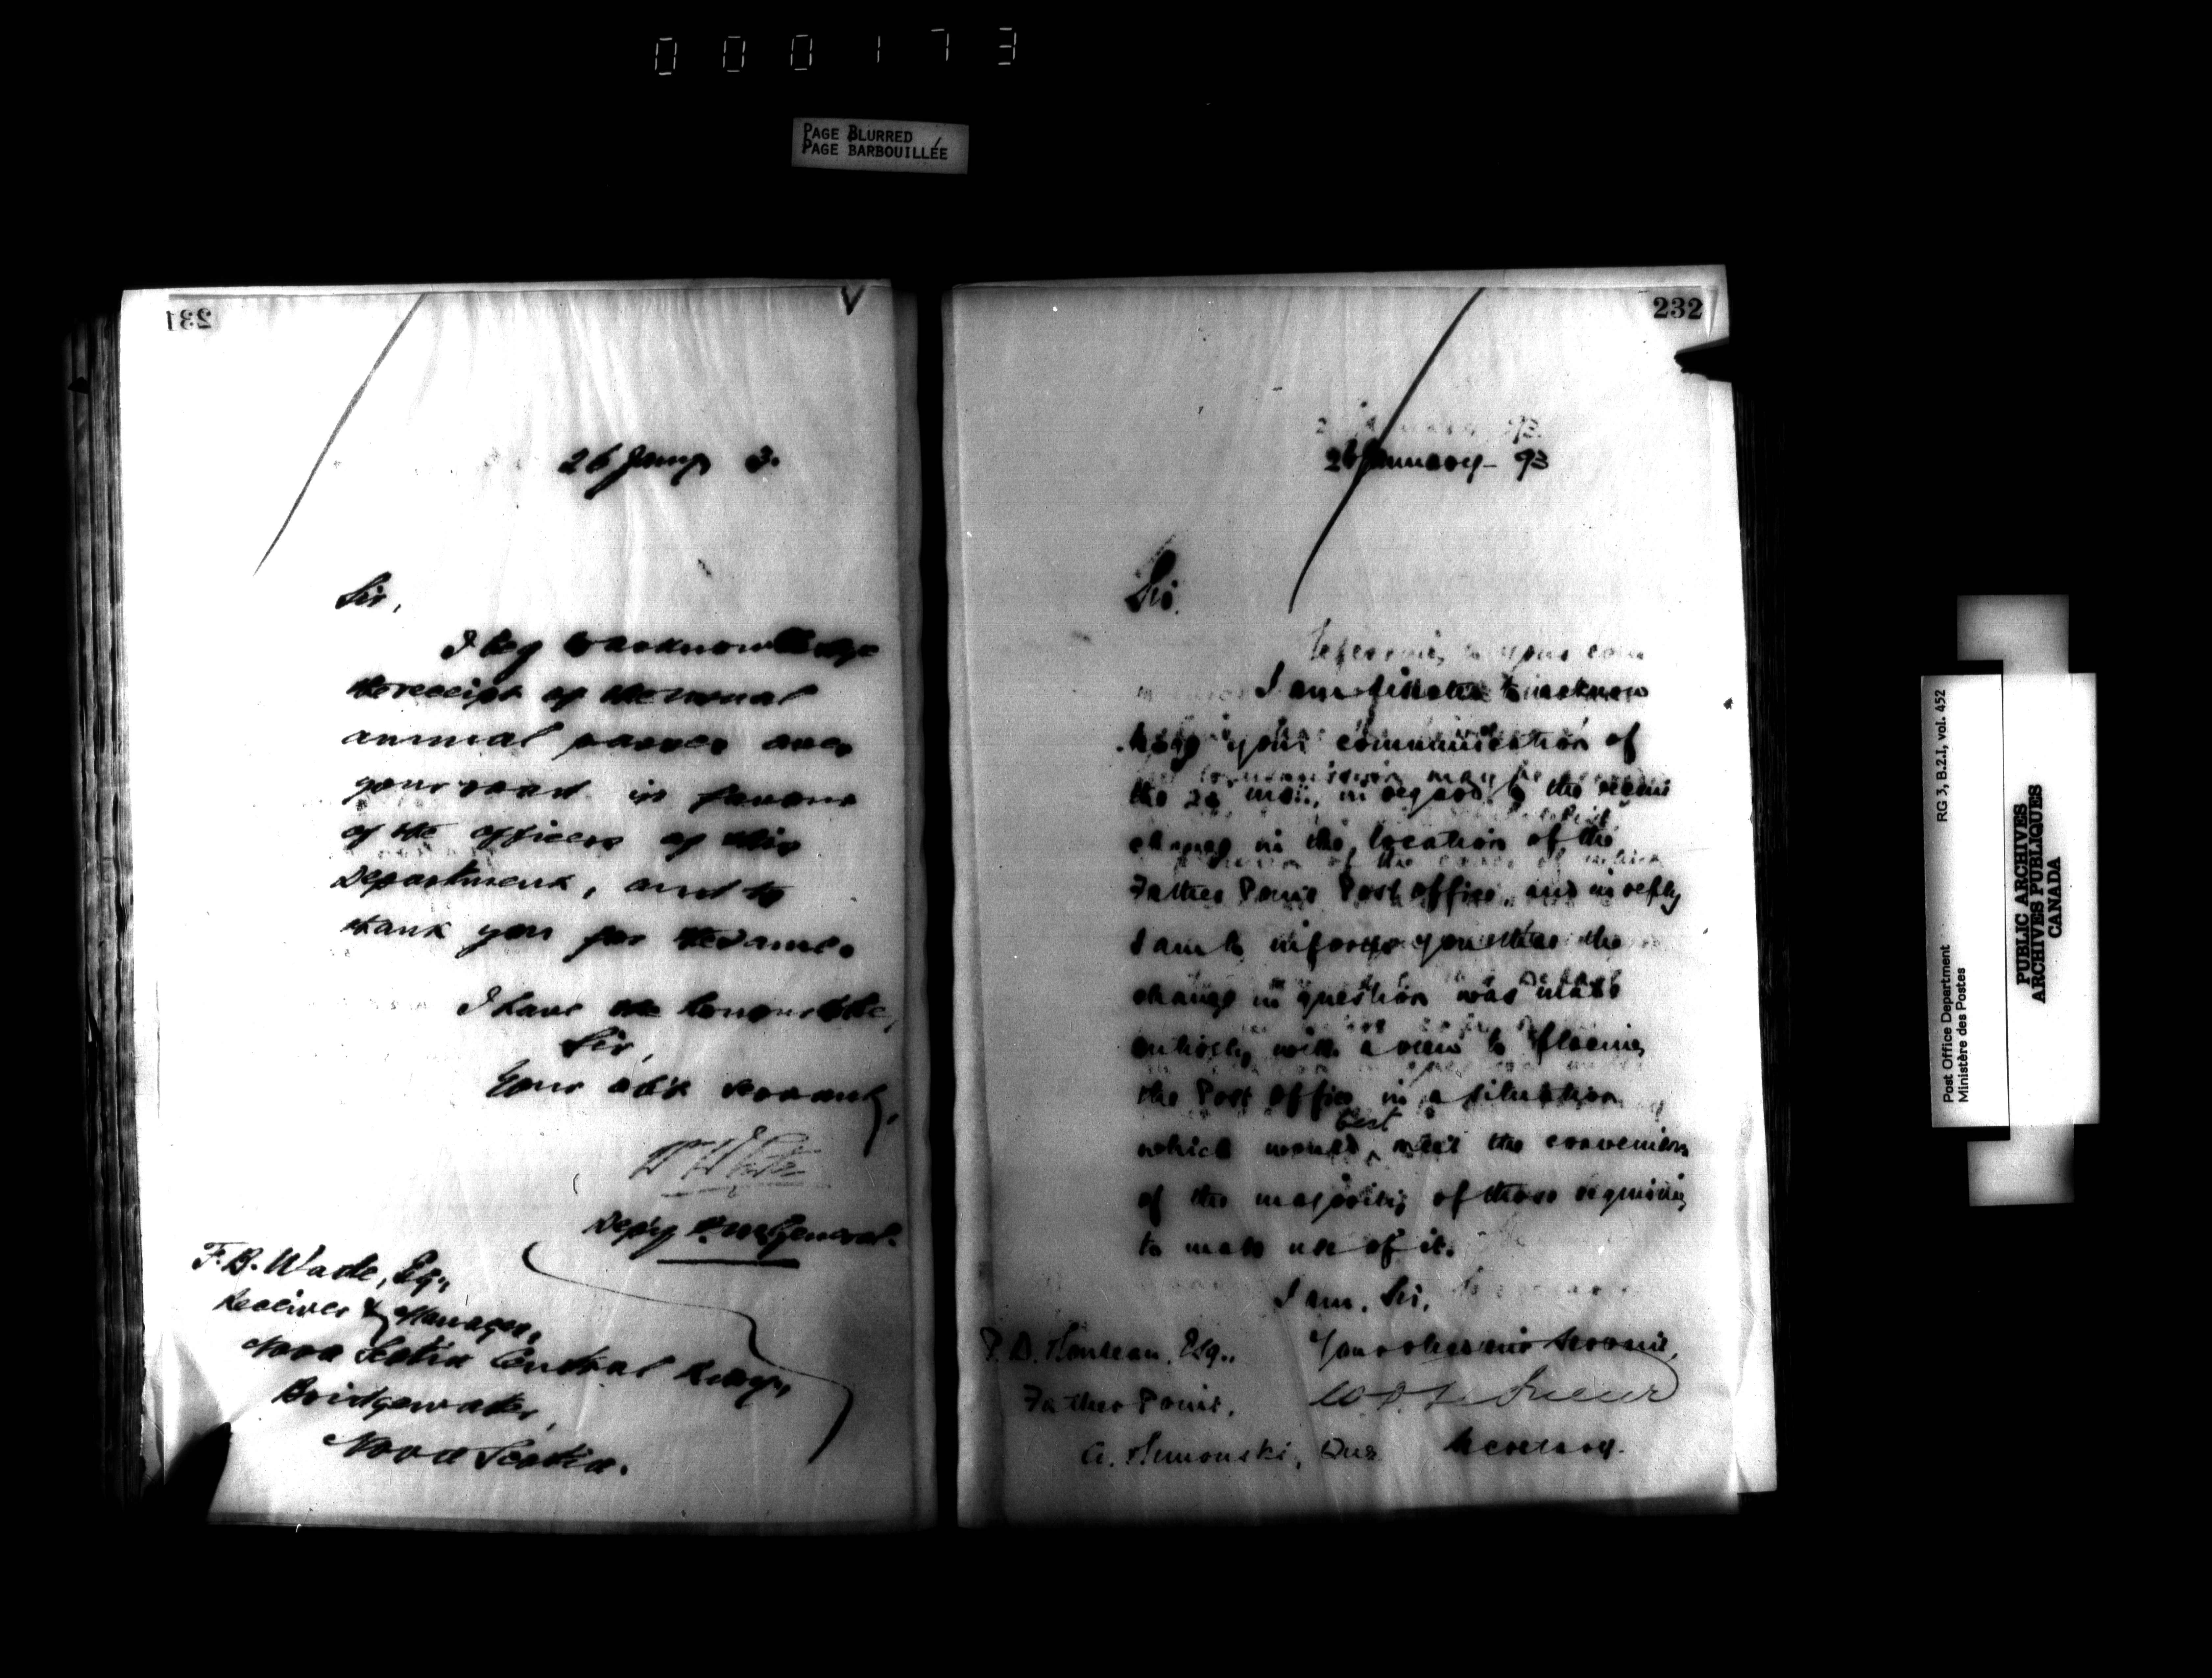 000173
PAGE BLURRED
PAGE BARBOUILLÉE
231
26 Jany 3.
Sir,
I beg to acknowledge
the receipt of the usual
annual passes over
your road in favour
of the officers of this
Department, and to
thank you for the same.
I have the honour to be,
Sir,
Your obt servant,
Wm White
Depy P.M. General.
F. B. Wade, Esq.,
Receiver & Manager,
Nova Scotia Central Railway,
Bridgewater,
Nova Scotia.
232
26 January - 93
Sir.
Referring to your com
I am directed to acknow
ledge your communication of
the inst., in regard to the recent
change in the location of the
Father Point Post office, and in reply
I am to inform you that the
change in question was made
entirely with a view to placing
the Post Office in a situation
which would best meet the convenience
of the majority of those requiring
to make use of it.
I am, Sir,
Your obedient servant,
W. D. LeSueur
Secretary.
Esq.,
Father Point,
Co. Rimouski, Que
Post Office Department
Ministère des Postes
RG 3, B.2.I, vol. 452
PUBLIC ARCHIVES
ARCHIVES PUBLIQUES
CANADA